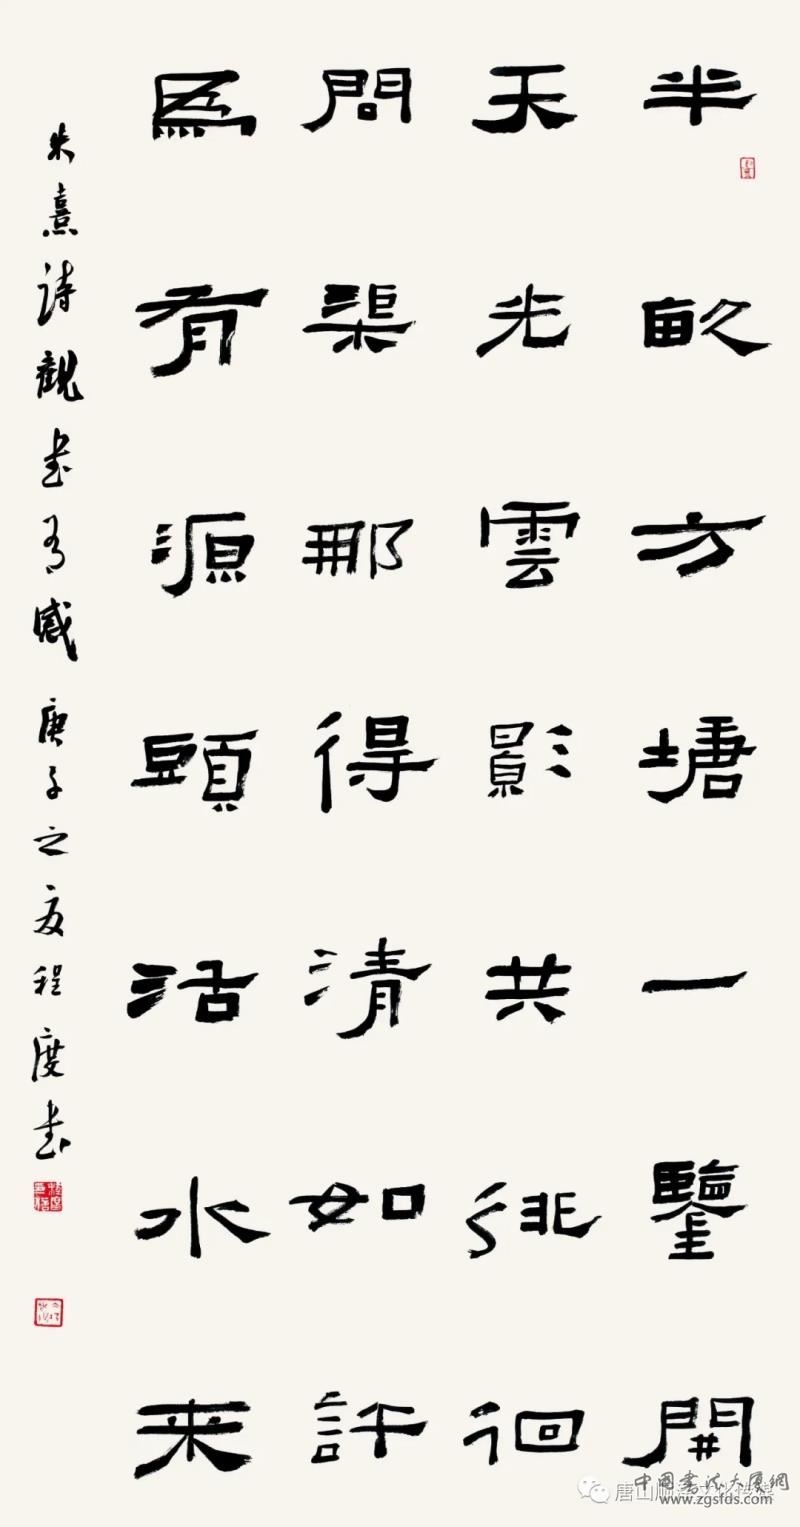 半畝方塘一鑒開
天光雲影共徘徊
問渠那得清如許
爲有源頭活水来
朱熹詩觀书有感庚子之夏程度书
唐山
文化传媒
中国书法大厦網
www.zgsfds.com